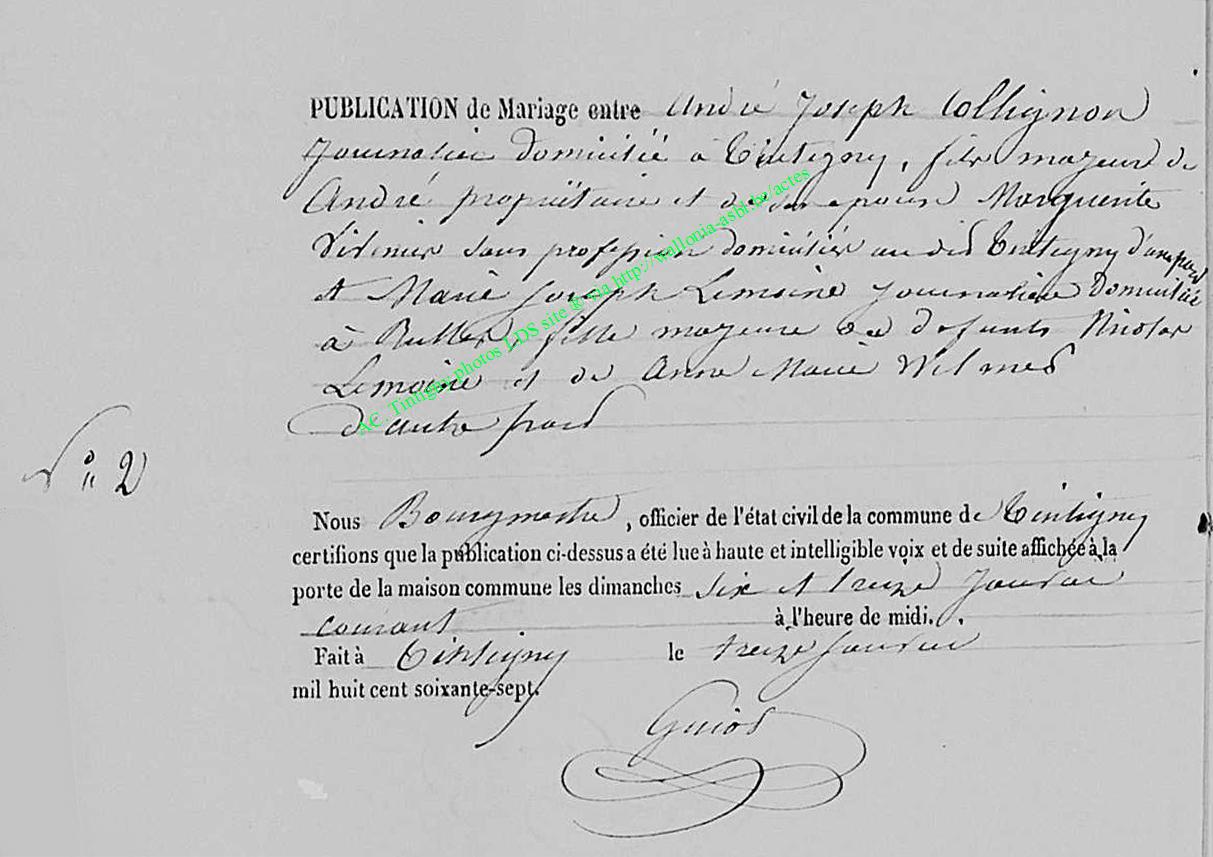 PUBLICATION de Mariage entre André Joseph Collignon
Journalier Domicilié à Tintigny, fils majeur de
André propriétaire et de son épouse Marguerite
sans profession domiciliés au dit Tintigny d'une part
et Marie Joseph Lemoine Journalière Domiciliée
à Rulles, fille majeure de défunts Nicolas
Lemoine et de Anne Marie Wilmes
d'autre part
N° 2
Nous Bourgmestre, officier de l'état civil de la commune de Tintigny
certifions que la publication ci-dessus a été lue à haute et intelligible voix et de suite affichée à la
porte de la maison commune les dimanches six et treize Janvier
courant à l'heure de midi.
Fait à Tintigny le treize Janvier
mil huit cent soixante-sept.
Guiot
AC. Tintigny photos LDS site @ via http://wallonia-asbl.be/actes